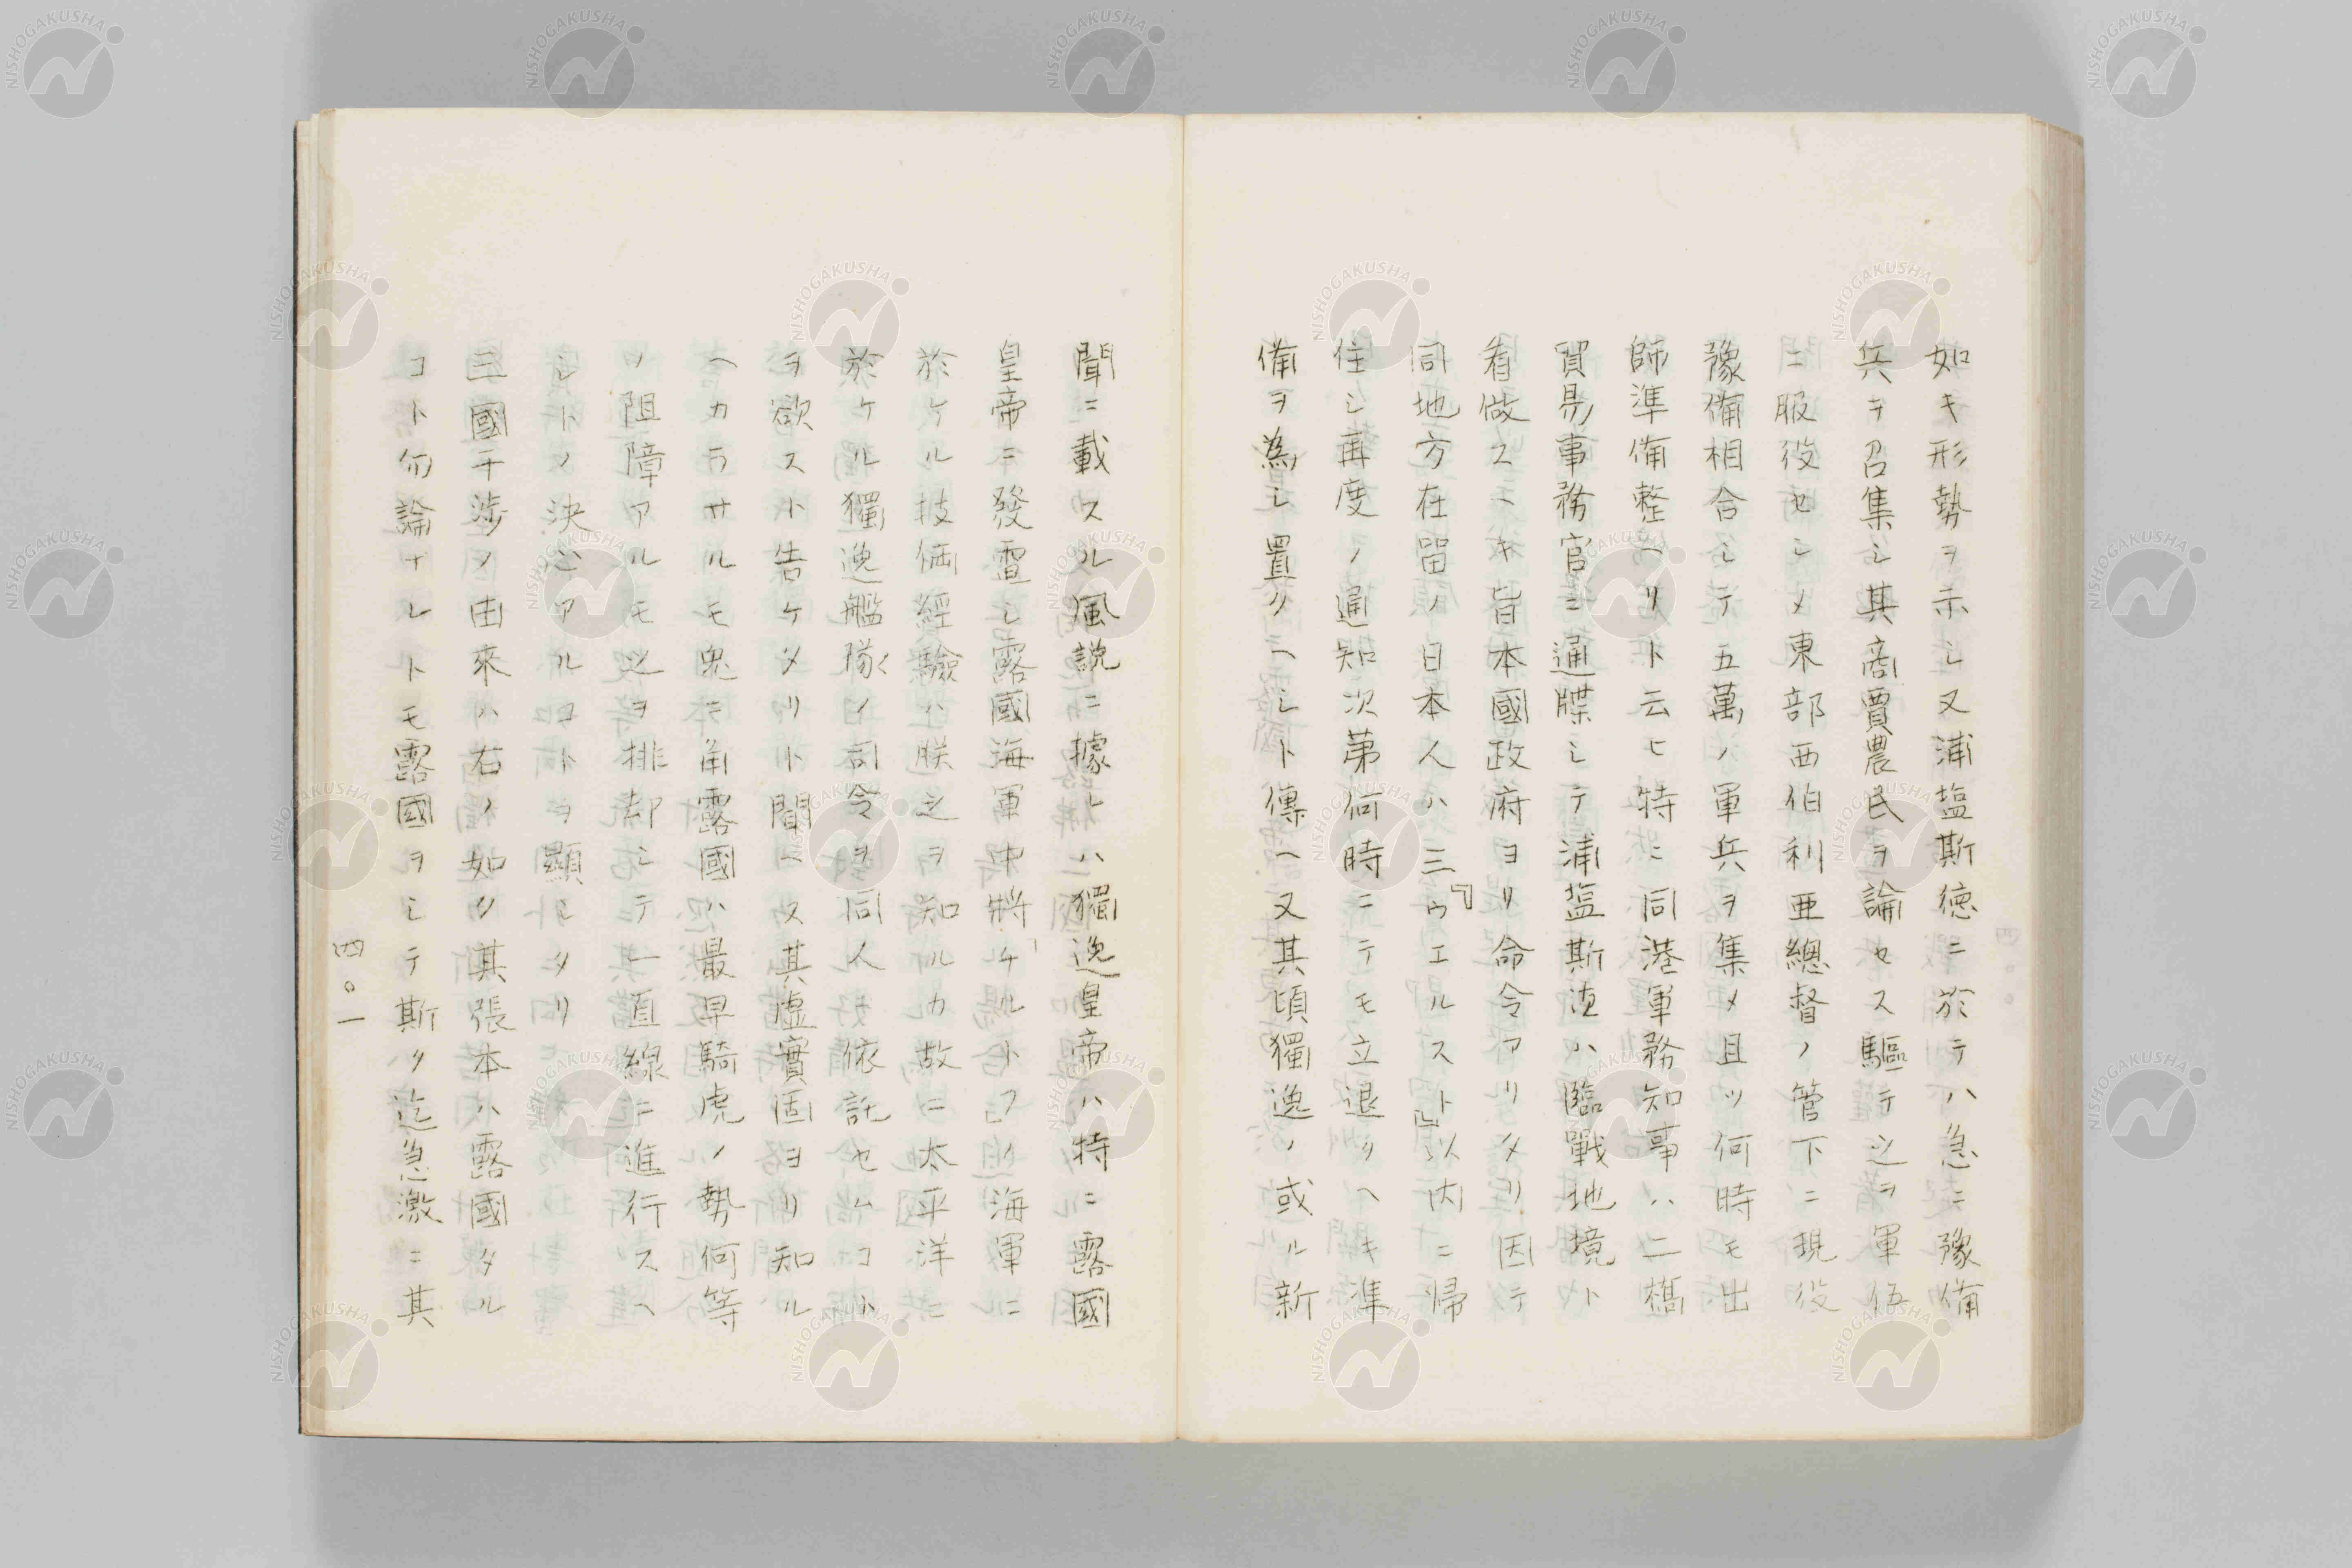 如キ形勢ヲ示シ又浦塩斯徳ニ於テハ急ニ豫備
兵ヲ召集シ其商賈農民ヲ論セス驅テ之ヲ軍伍
ニ服役セシメ東部西伯利亜總督ノ管下ニ現役
豫備相合シテ五萬ノ軍兵ヲ集メ且ツ何時モ出
師準備整ヘリト云ヒ特ニ同港軍務知事ハ二橋
貿易事務官ニ通牒シテ浦塩斯徳ハ臨戰地境ト
看做スヘキ旨本國政府ヨリ命令アリタリ因テ
同地方在留ノ日本人ハ三『ウエルスト』以内ニ帰
住シ再度ノ通知次第何時ニテモ立退クヘキ準
備ヲ為シ置クヘシト傳ヘ又其頃獨逸ノ或ル新
聞ニ載スル風説ニ據レハ獨逸皇帝ハ特ニ露國
皇帝ニ發電シ露國海軍中將「チルトフ」ノ海軍ニ
於ケル技倆經驗ハ朕之ヲ知ルカ故ニ太平洋ニ
於ケル獨逸艦隊ノ司令ヲ同人ニ依託セムコト
ヲ欲スト告ケタリト聞ヘ又其虛實固ヨリ知ル
ヘカラサルモ兎ニ角露國ハ最早騎虎ノ勢何等
ノ阻障アルモ之ヲ排却シテ一直線ニ進行スヘ
シトノ決心アルコトヲ顯シタリ
三國干渉ノ由來ハ右ノ如ク其張本ハ露國タル
コト勿論ナレトモ露國ヲシテ斯ク迄急激ニ其
四〇一
NISHOGAKUSHA